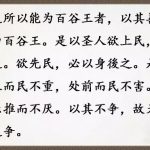 所以能为百谷王者，以其
百谷王。是以圣人欲上民，
。欲先民，必以身後之。
而民不重，处前而民不害。
推而不厌。以其不争，故
争。